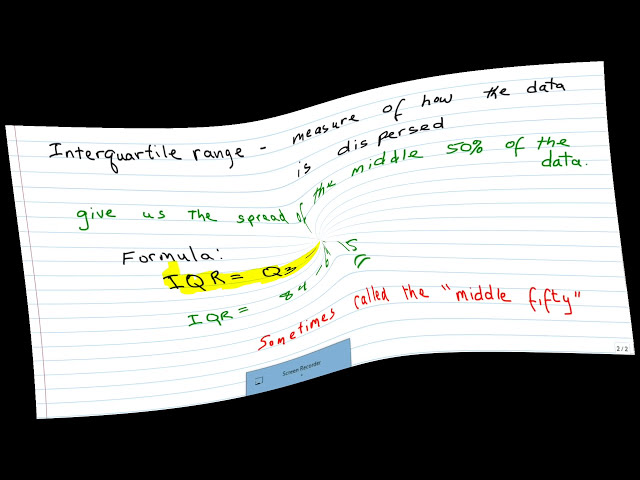 Interquartile range - measure of how the data
is dispersed
give us the spread of the middle 50% of the
data.
Formula:
IQR = Q3 -
IQR = 84 -
Sometimes called the "middle fifty"
2/2
Screen Recorder